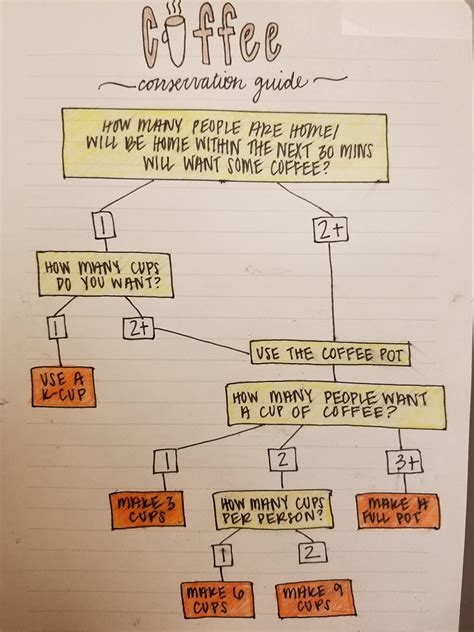 Coffee
conservation guide
HOW MANY PEOPLE ARE HOME/
WILL BE HOME WITHIN THE NEXT 30 MINS
WILL WANT SOME COFFEE?
1
2+
HOW MANY CUPS
DO YOU WANT?
1
2+
USE THE COFFEE POT
USE A
K-CUP
HOW MANY PEOPLE WANT
A CUP OF COFFEE?
1
2
3+
MAKE 3
CUPS
HOW MANY CUPS
PER PERSON?
MAKE A
FULL POT
1
2
MAKE 6
CUPS
MAKE 9
CUPS